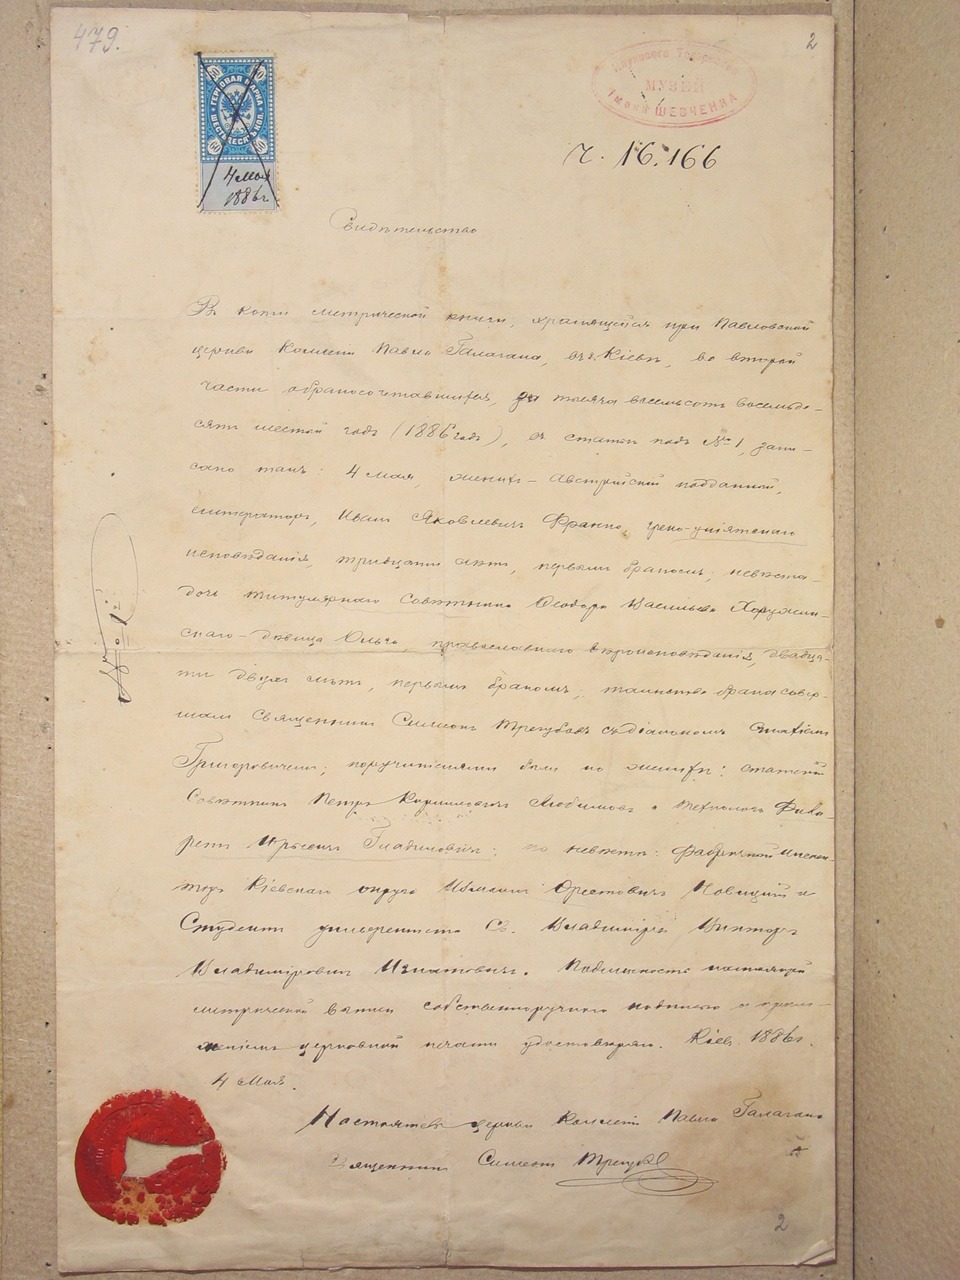 479.
2
60 60
ГЕРБОВАЯ МАРКА
ШЕСТЬДЕСЯТЪ КОП.
60 60
4 Мая
1886 г
Наукового Товариства
МУЗЕЙ
імени ШЕВЧЕНКА
ч. 16.166
Свидѣтельство
Въ копіи метрической книги, хранящейся при Павловской
церкви Коллегіи Павла Галагана, въ г. Кіевѣ, во второй
части о бракосочетавшихся, за тысяча восемьсотъ восемьде-
сятъ шестой годъ (1886 годъ), въ статьи подъ № 1, запи-
сано такъ: 4 мая, женихъ – Австрійскій подданный,
литераторъ, Иванъ Яковлевичъ Франко, греко-уніятскаго
исповѣданія, тридцати лѣтъ, первымъ бракомъ; невѣста –
дочь титулярнаго Совѣтника Ѳеодора Васильева Хоружин-
скаго – дѣвица Ольга, православнаго вѣроисповѣданія, двадца-
ти двухъ лѣтъ, первымъ бракомъ; таинство брака совер-
шалъ Священникъ Симеонъ Трегубовъ съ діакономъ Игнатіемъ
Григоровичемъ; поручителями были по женихѣ: статскій
Совѣтникъ Петръ Кирилловичъ Любимовъ и технологъ Фила-
ретъ Гладиловичъ; по невѣстѣ: фабричной инспек-
торъ Кіевскаго округа Орестовичъ Новицкій и
Студентъ университета Св. Владиміра Викторъ
Владиміровичъ Игнатовичъ. Подлинность настоящей
метрической выписи собственноручною подписью и прило-
женіемъ церковной печати удостовѣряю. Кіевъ. 1886 г.
4 Мая.
№ 1й
Настоятель церкви Коллегіи Павла Галагана
Священникъ Симеонъ Трегубовъ
2